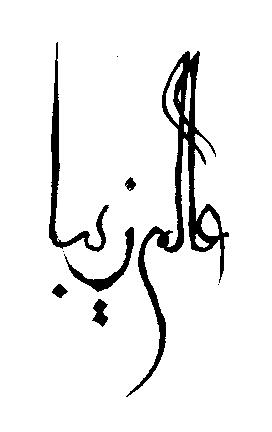 عالم زیبا